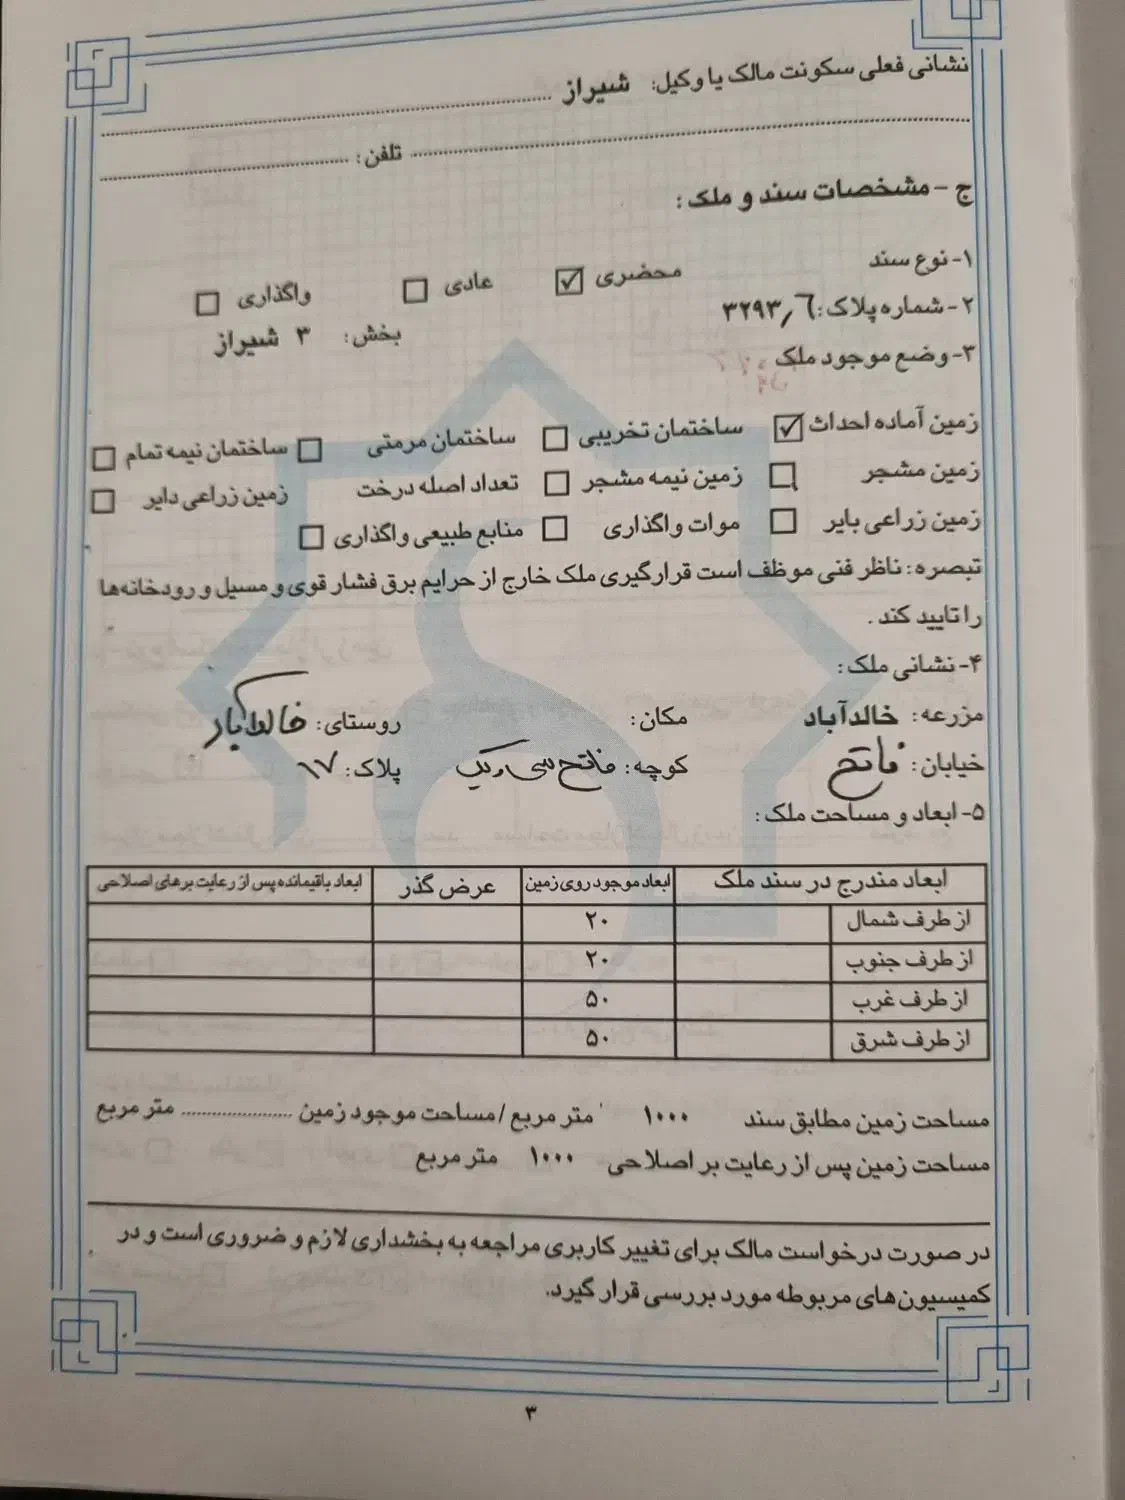 نشانی فعلی سکونت مالک یا وکیل: شیراز
تلفن:
ج - مشخصات سند و ملک:
۱- نوع سند محضری ☑ عادی ☐ واگذاری ☐
۲- شماره پلاک: ۳۲۹۳٫۶ بخش: ۳ شیراز
۳- وضع موجود ملک
زمین آماده احداث ☑ ساختمان تخریبی ☐ ساختمان مرمتی ☐ ساختمان نیمه تمام ☐
زمین مشجر ☐ زمین نیمه مشجر ☐ تعداد اصله درخت زمین زراعی دایر ☐
زمین زراعی بایر ☐ موات واگذاری ☐ منابع طبیعی واگذاری ☐
تبصره: ناظر فنی موظف است قرارگیری ملک خارج از حرایم برق فشار قوی و مسیل و رودخانه‌ها
را تایید کند.
۴- نشانی ملک:
مزرعه: خالدآباد مکان: روستای: خالدآباد
خیابان: فاتح کوچه: فاتح سی و یک پلاک: ۱۷
۵- ابعاد و مساحت ملک:
ابعاد مندرج در سند ملک ابعاد موجود روی زمین عرض گذر ابعاد باقیمانده پس از رعایت برهای اصلاحی
از طرف شمال ۲۰
از طرف جنوب ۲۰
از طرف غرب ۵۰
از طرف شرق ۵۰
مساحت زمین مطابق سند ۱۰۰۰ متر مربع / مساحت موجود زمین متر مربع
مساحت زمین پس از رعایت بر اصلاحی ۱۰۰۰ متر مربع
در صورت درخواست مالک برای تغییر کاربری مراجعه به بخشداری لازم و ضروری است و در
کمیسیون‌های مربوطه مورد بررسی قرار گیرد.
۳